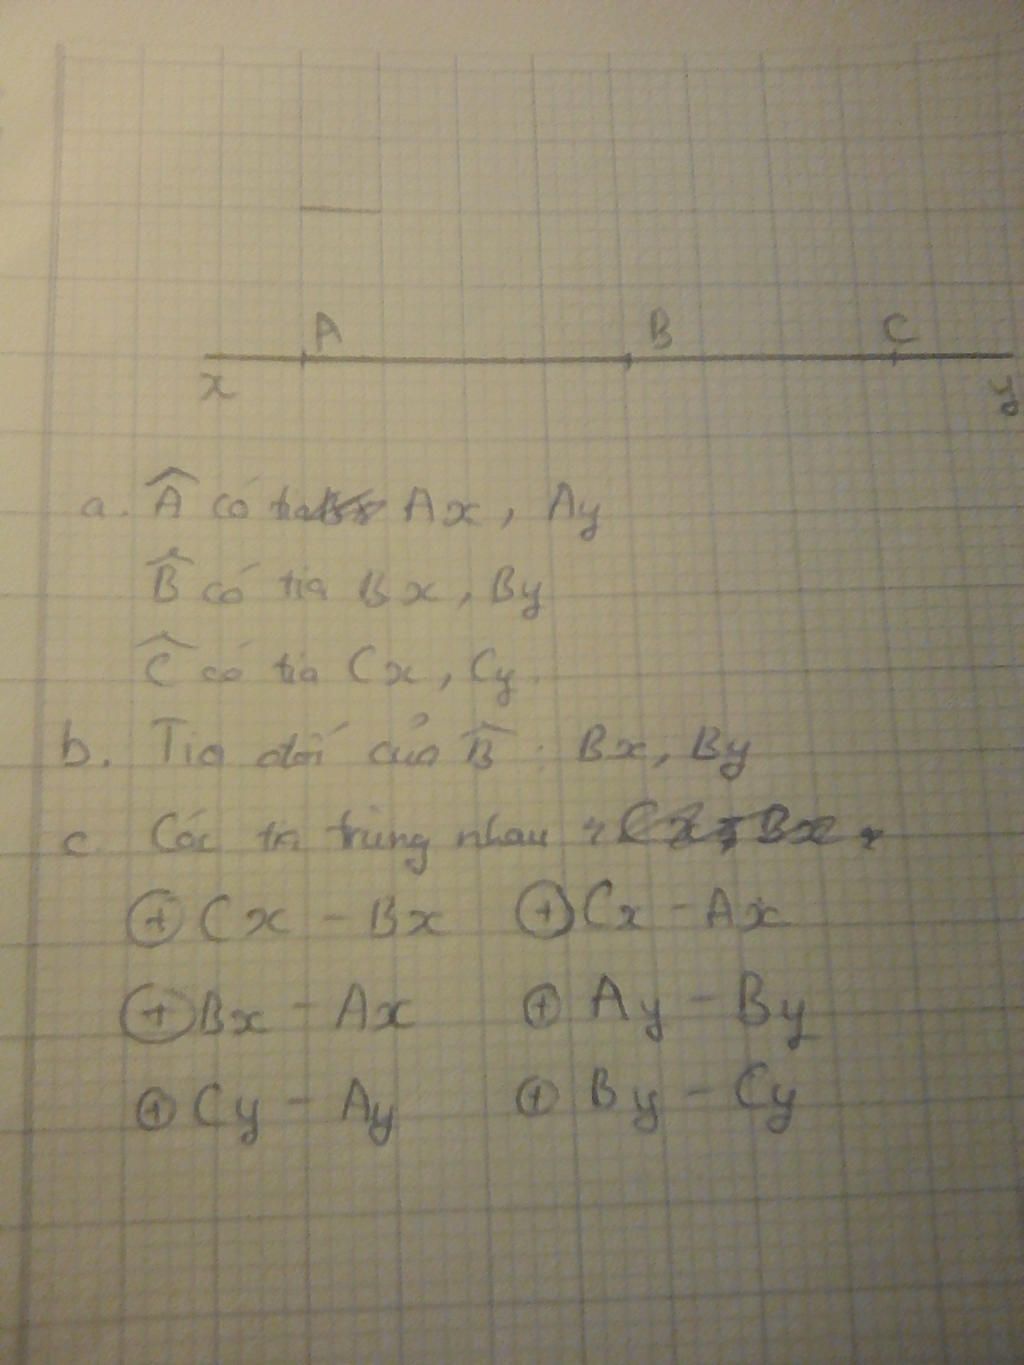 A B C
x y
a. Â có tia Ax, Ay
B̂ có tia Bx, By
Ĉ có tia Cx, Cy.
b. Tia đối của B̂ : Bx, By
c. Các tia trùng nhau :
⊕ Cx - Bx ⊕ Cx - Ax
⊕ Bx - Ax ⊕ Ay - By
⊕ Cy - Ay ⊕ By - Cy